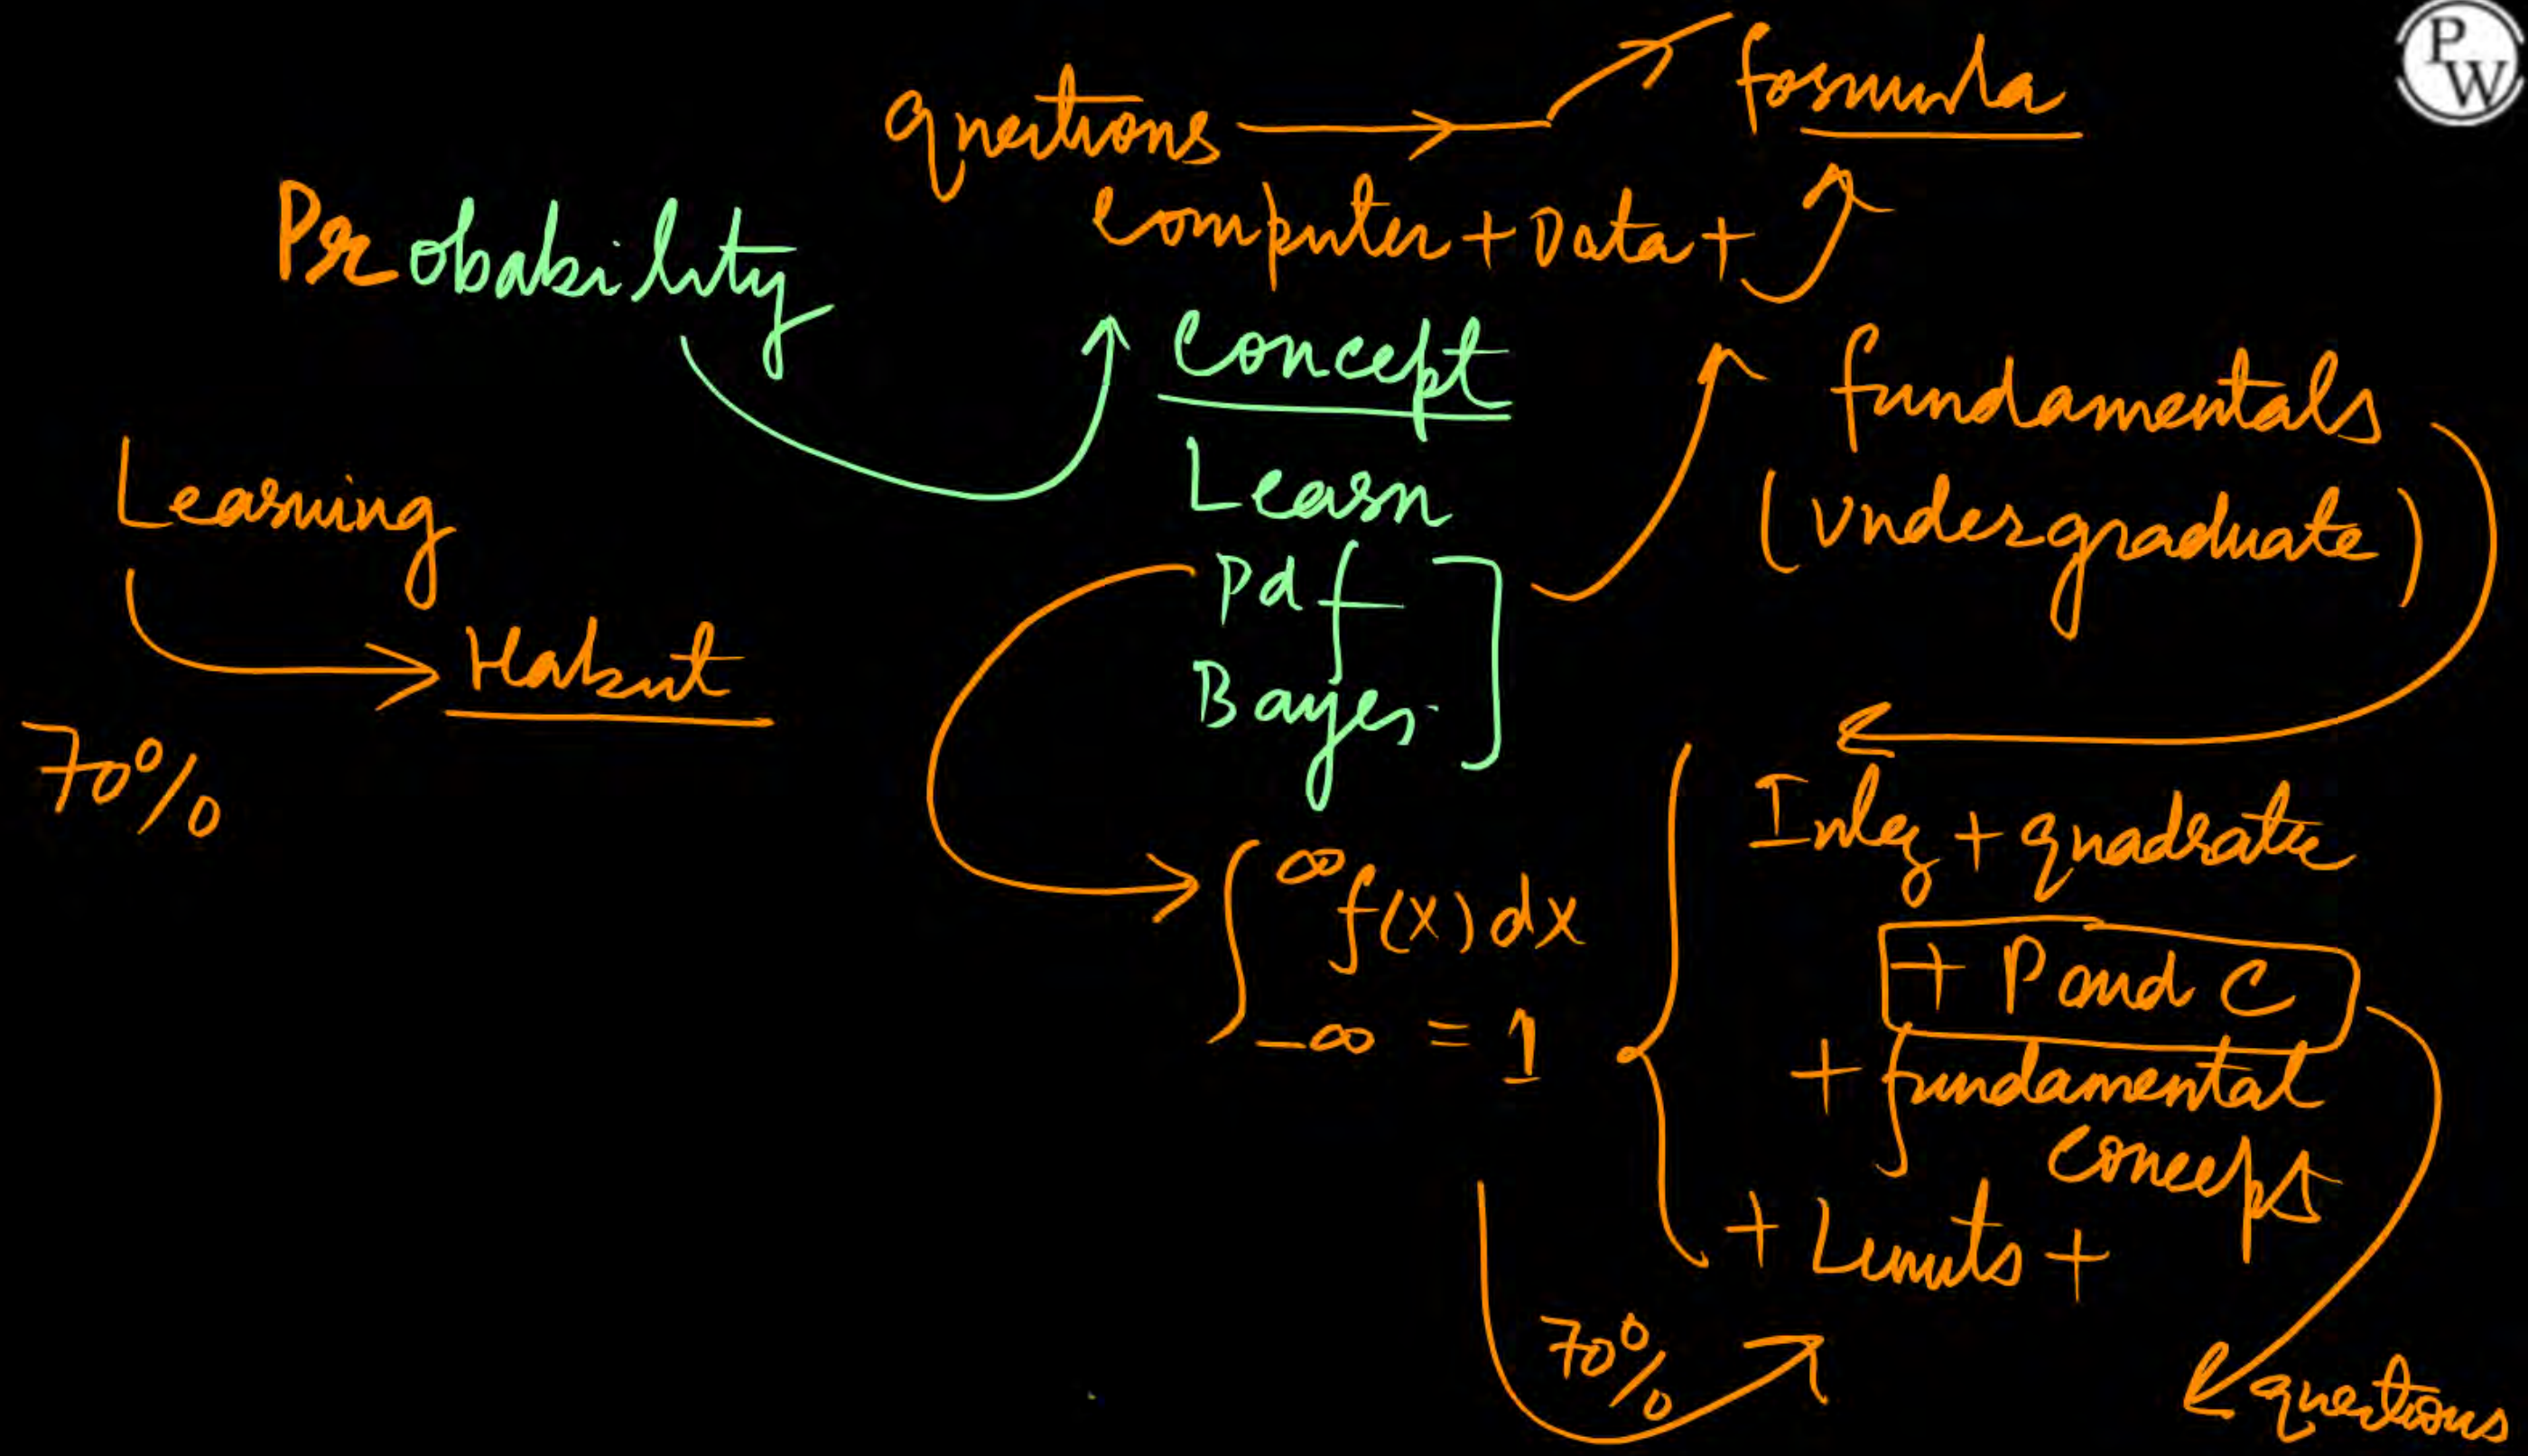 PW
questions → formula
computer + Data +
Probability
Concept
Learn
Pdf
Bayes
fundamentals
(Undergraduate)
Learning
Habit
70%
∫_{-∞}^{∞} f(x) dx
= 1
Integ + quadratic
+ P and C
+ fundamental
concept
+ Limits +
70%
questions